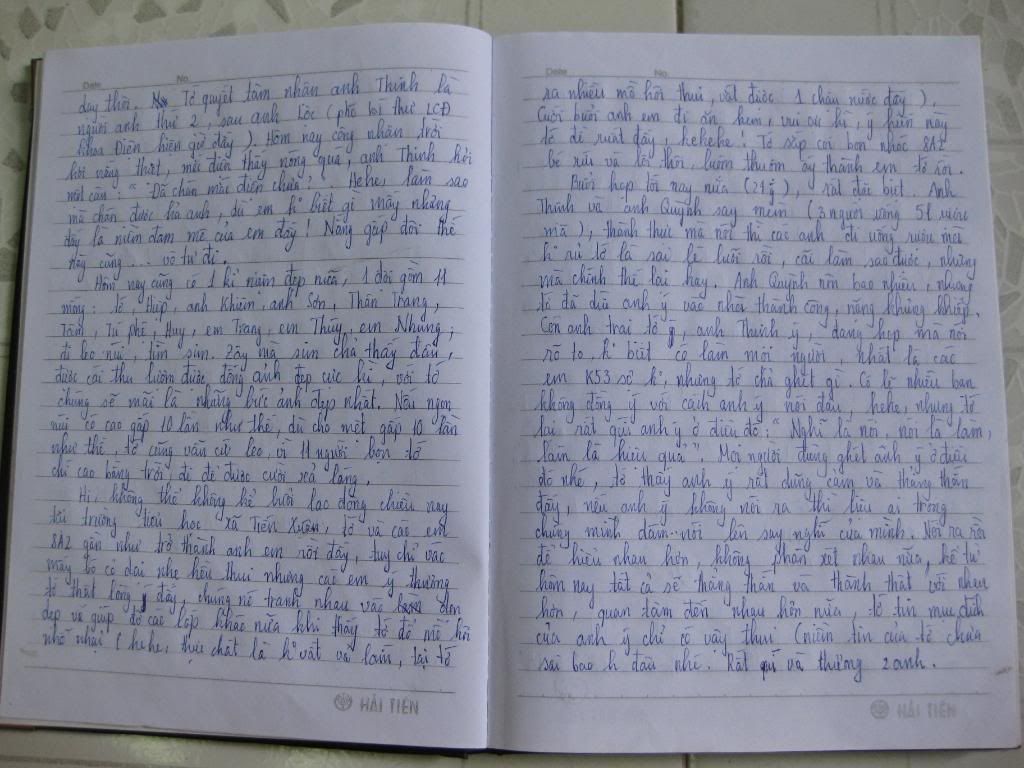 Date No.
dạy thời. Tớ quyết tâm nhận anh Thinh là
người anh thứ 2 sau anh Lộc (phó bí thư LCĐ
khoa Điện hiện giờ đấy). Hôm nay công nhận trời
hơi nắng thật, mỗi điện thấy nóng quá, anh Thinh hỏi
một câu: "Đã chán mắc điện chưa". Hehe, làm sao
mà chán được hả anh, dù em k biết gì mấy nhưng
đấy là niềm đam mê của em đấy! Nắng gấp đôi thế
này cũng... vô tư đi.
Hôm nay cũng có 1 kỉ niệm đẹp nữa, 1 đội gồm 11
mống: tớ, Hiệp, anh Khiêm, anh Sơn, Thân Trang,
Tâm, Tú phê, Huy, em Trang, em Thủy, em Nhung;
đi leo núi, tìm sim. Zậy mà sim chả thấy đâu,
được cái thu lượm được đống ảnh đẹp cực kì, với tớ
chúng sẽ mãi là những bức ảnh đẹp nhất. Nếu ngọn
núi có cao gấp 10 lần như thế, dù cho mệt gấp 10 lần
như thế, tớ cũng vẫn cứ leo, vì 11 người bọn tớ
chỉ cao bằng trời đi để được cười sả láng.
Hi! không thể không kể buổi lao động chiều nay
tại trường tiểu học xã Tiến Xuân, tớ và các em
8A2 gần như trở thành anh em rồi đấy, tuy chỉ vác
mấy tớ cỏ dại nhẹ hều thui nhưng các em ý thương
tớ thật lòng đấy, chúng nó tranh nhau vào dọn
dẹp và giúp đỡ các lớp khác nữa khi thấy tớ đổ mồ hôi
nhễ nhại (hehe, thực chất là k vất vả lắm, tại tớ
HẢI TIẾN
Date No.
ra nhiều mồ hôi thui, vắt được 1 chậu nước đấy).
Cuối buổi anh em đi ăn kem, vui cực kì, ý kiến này
tớ đề xuất đấy, hehehe! Tớ sắp coi bọn nhóc 8A2
bé xíu và lôi thôi, luộm thuộm ấy thành em tớ rồi.
Buổi họp tối nay nữa (21h), rất đặc biệt. Anh
Thinh và anh Quỳnh say mèm (3 người uống 5l rượu
mà), thành thực mà nói thì các anh đi uống rượu mà
k rủ tớ là sai lè lưỡi rồi, cãi làm sao được, nhưng
mà chính thế lại hay. Anh Quỳnh nói bao nhiêu, nhưng
tớ đã dìu anh ý vào nhà thành công, nặng khủng khiếp.
Còn anh trai tớ ý, anh Thinh ý, đang họp mà nói
rõ to, k biết có làm mọi người, nhất là các
em K53 sợ k, nhưng tớ chả ghét gì. Có lẽ nhiều bạn
không đồng ý với cách anh ý nói đâu, hehe, nhưng tớ
lại rất quý anh ý ở điều đó: "Nghĩ là nói, nói là làm,
làm là hiệu quả". Mọi người đừng ghét anh ý ở điều
đó nhé, tớ thấy anh ý rất dũng cảm và thẳng thắn
đấy, nếu anh ý không nói ra thì liệu ai trong
chúng mình dám nói lên suy nghĩ của mình. Nói ra rồi
để hiểu nhau hơn, không phán xét nhau nữa, kể từ
hôm nay tất cả sẽ thẳng thắn và thành thật với nhau
hơn, quan tâm đến nhau hơn nữa, tớ tin mục đích
của anh ý chỉ có vậy thui (niềm tin của tớ chưa
sai bao h đâu nhé. Rất quí và thương 2 anh.
HẢI TIẾN